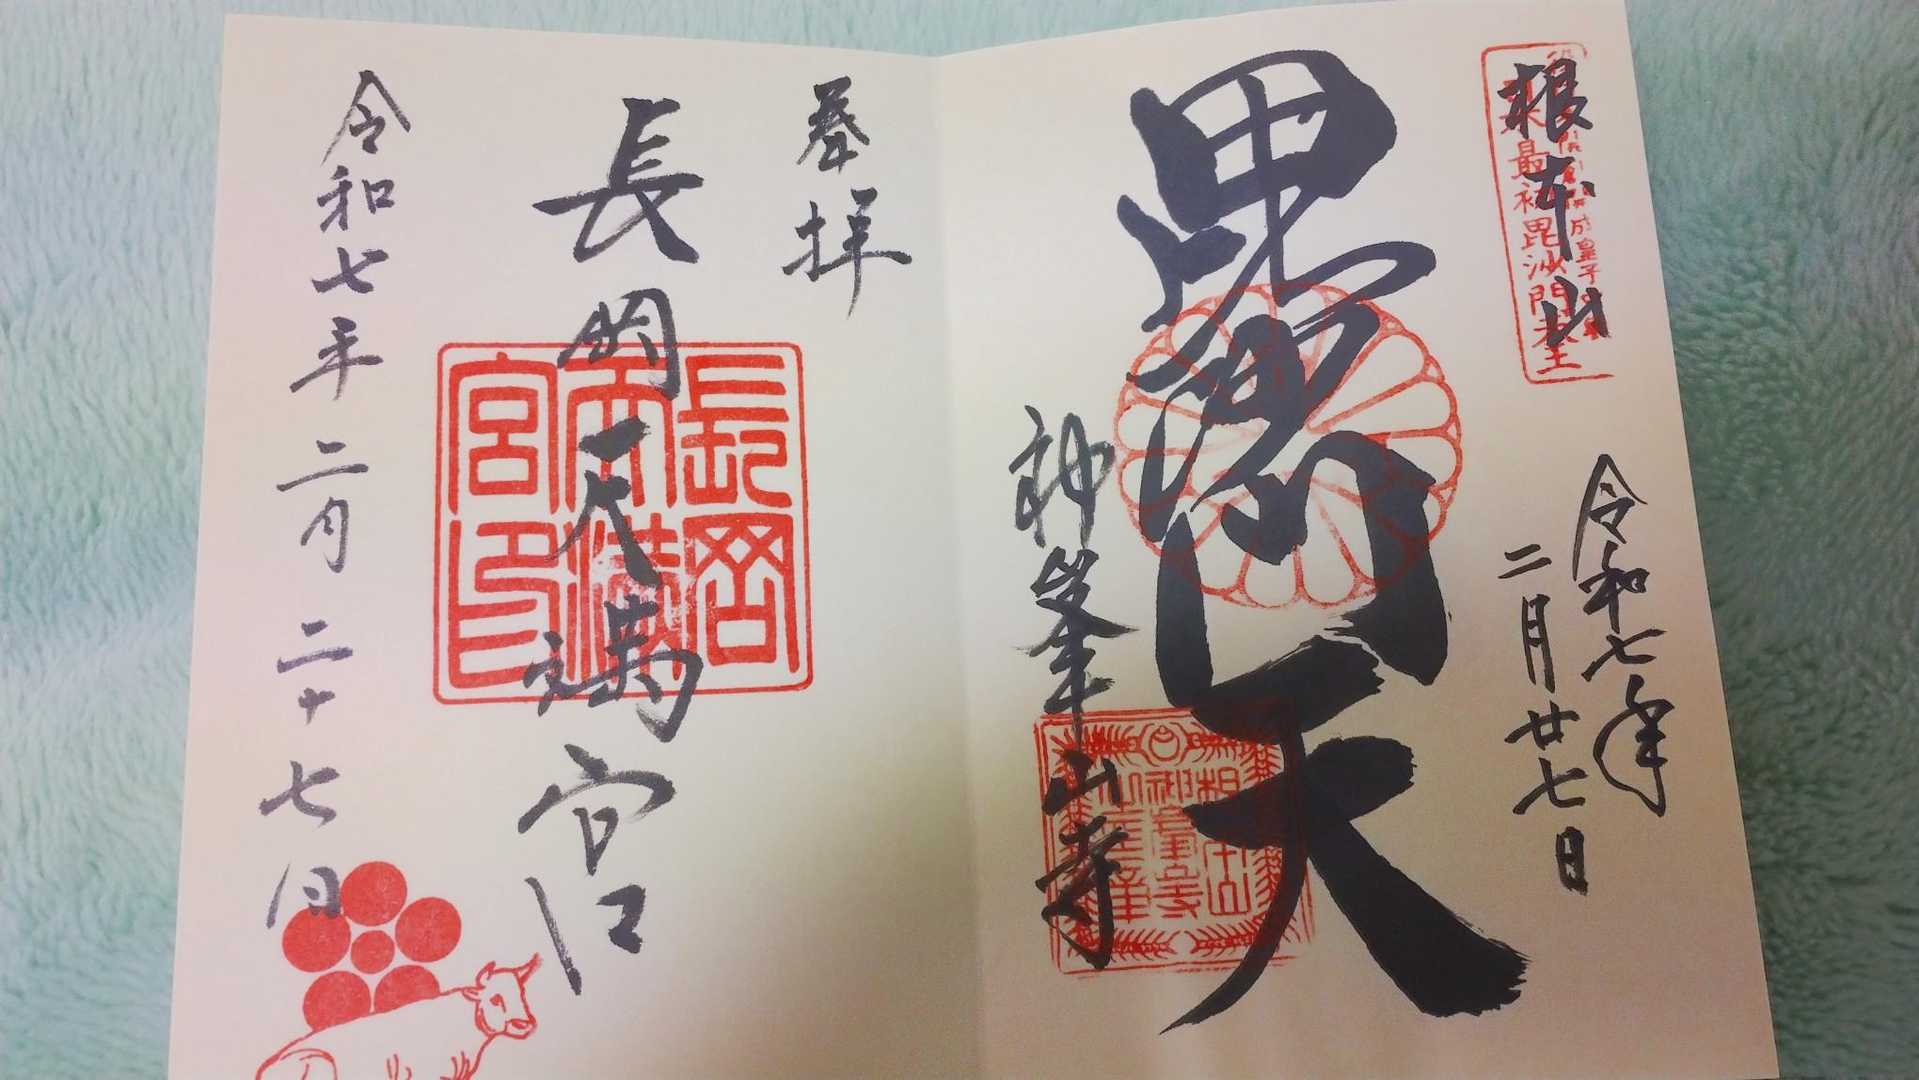 根本山
最初毘沙門天王
令和七年
二月廿七日
毘沙門天
神峯山寺
奉拝
長岡天満宮
長岡天満宮印
令和七年二月二十七日